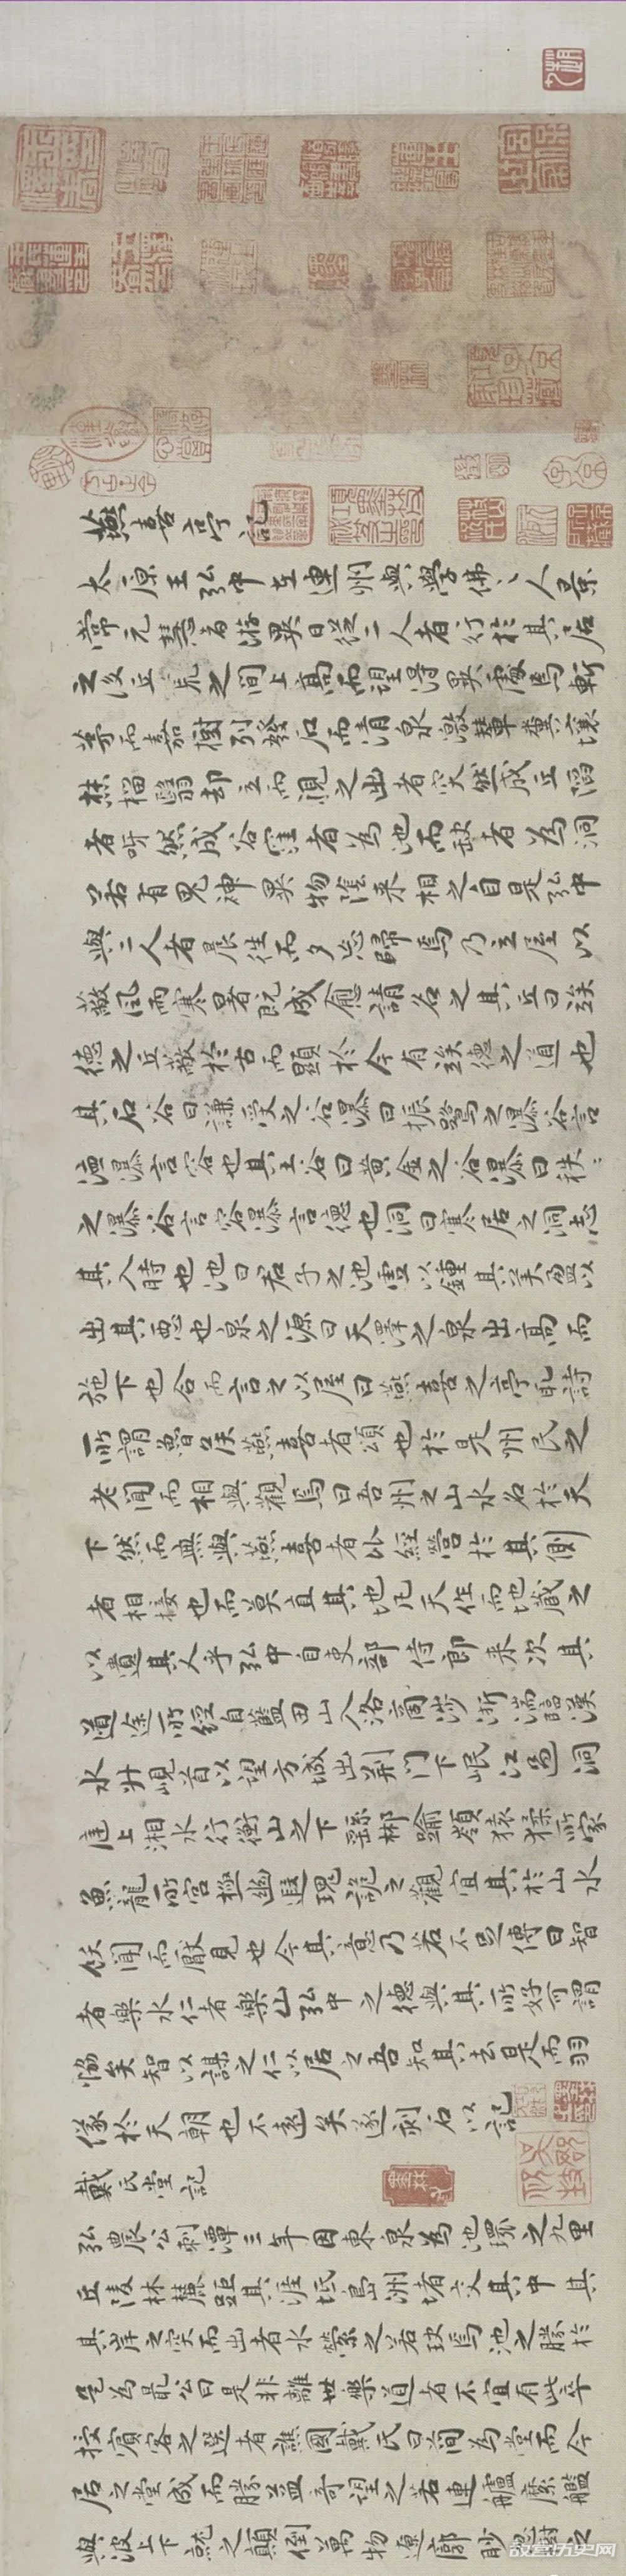 燕喜亭記
太原王弘中在連州與學佛〻人景
常元慧者游異日從二人者行於其居
之後丘荒之間上高而望得異處焉斬
茅而嘉樹列發石而清泉激輦糞壤
焚榴翳却立而視之出者突然成丘陷
者呀然成谷窪者為池而缺者為洞
若有鬼神異物陰來相之自是弘中
與二人者晨往而夕忘歸焉乃立屋以
蔽風雨寒暑既成愈請名之其丘曰竢
德之丘蔽於古而顯於今有竢德之道也
其石谷曰謙受之谷瀑曰振鷺之瀑谷言
瀑言容也其土谷曰黃金之谷瀑曰秩〻
之瀑谷言容瀑言德也洞曰寒居之洞志
其入時也池曰君子之池虛以鍾其美盈以
出其惡也泉之源曰天澤之泉出高而
施下也合而言之以屋曰燕喜之亭取詩
所謂魯侯燕喜者頌也於是州民之
老聞而相與觀焉曰吾州之山水名於天
下然而無與燕喜者比經營於其側
者相接也而莫直其地凡天作而地藏之
以遺其人乎弘中自吏部侍郎來次其
道途所經自藍田山入洛商涉淅湍臨漢
水升峴首以望方城出荊門下岷江過洞
庭上湘水行衡山之下繇郴踰嶺猿狖所家
魚龍所宮極幽遐瑰詭之觀宜其於山水
飫聞而厭見也今其意乃若不足傳曰智
者樂水仁者樂山弘中之德與其所好可謂
恊矣智以謀之仁以居之吾知其去是而羽
儀於天朝也不遠矣遂刻石以記
戴氏堂記
弘農公刺潭三年因東泉為池環之九里
丘陵林麓距其涯坻島洲堵交其中其
其岸之突而出者水縈之若玦焉池之勝於
是為最公曰是非離世樂道者不宜有此卒
授賓客之選者譙國戴氏曰簡為堂而今
居之堂成而勝益奇望之若連艫縻艦
與波上下就之顛倒萬物遼廓眇忽樹之
故宮历史网